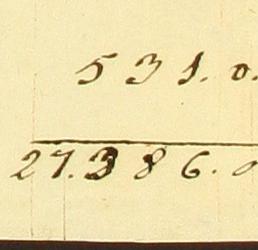 531.0.
27.386.0